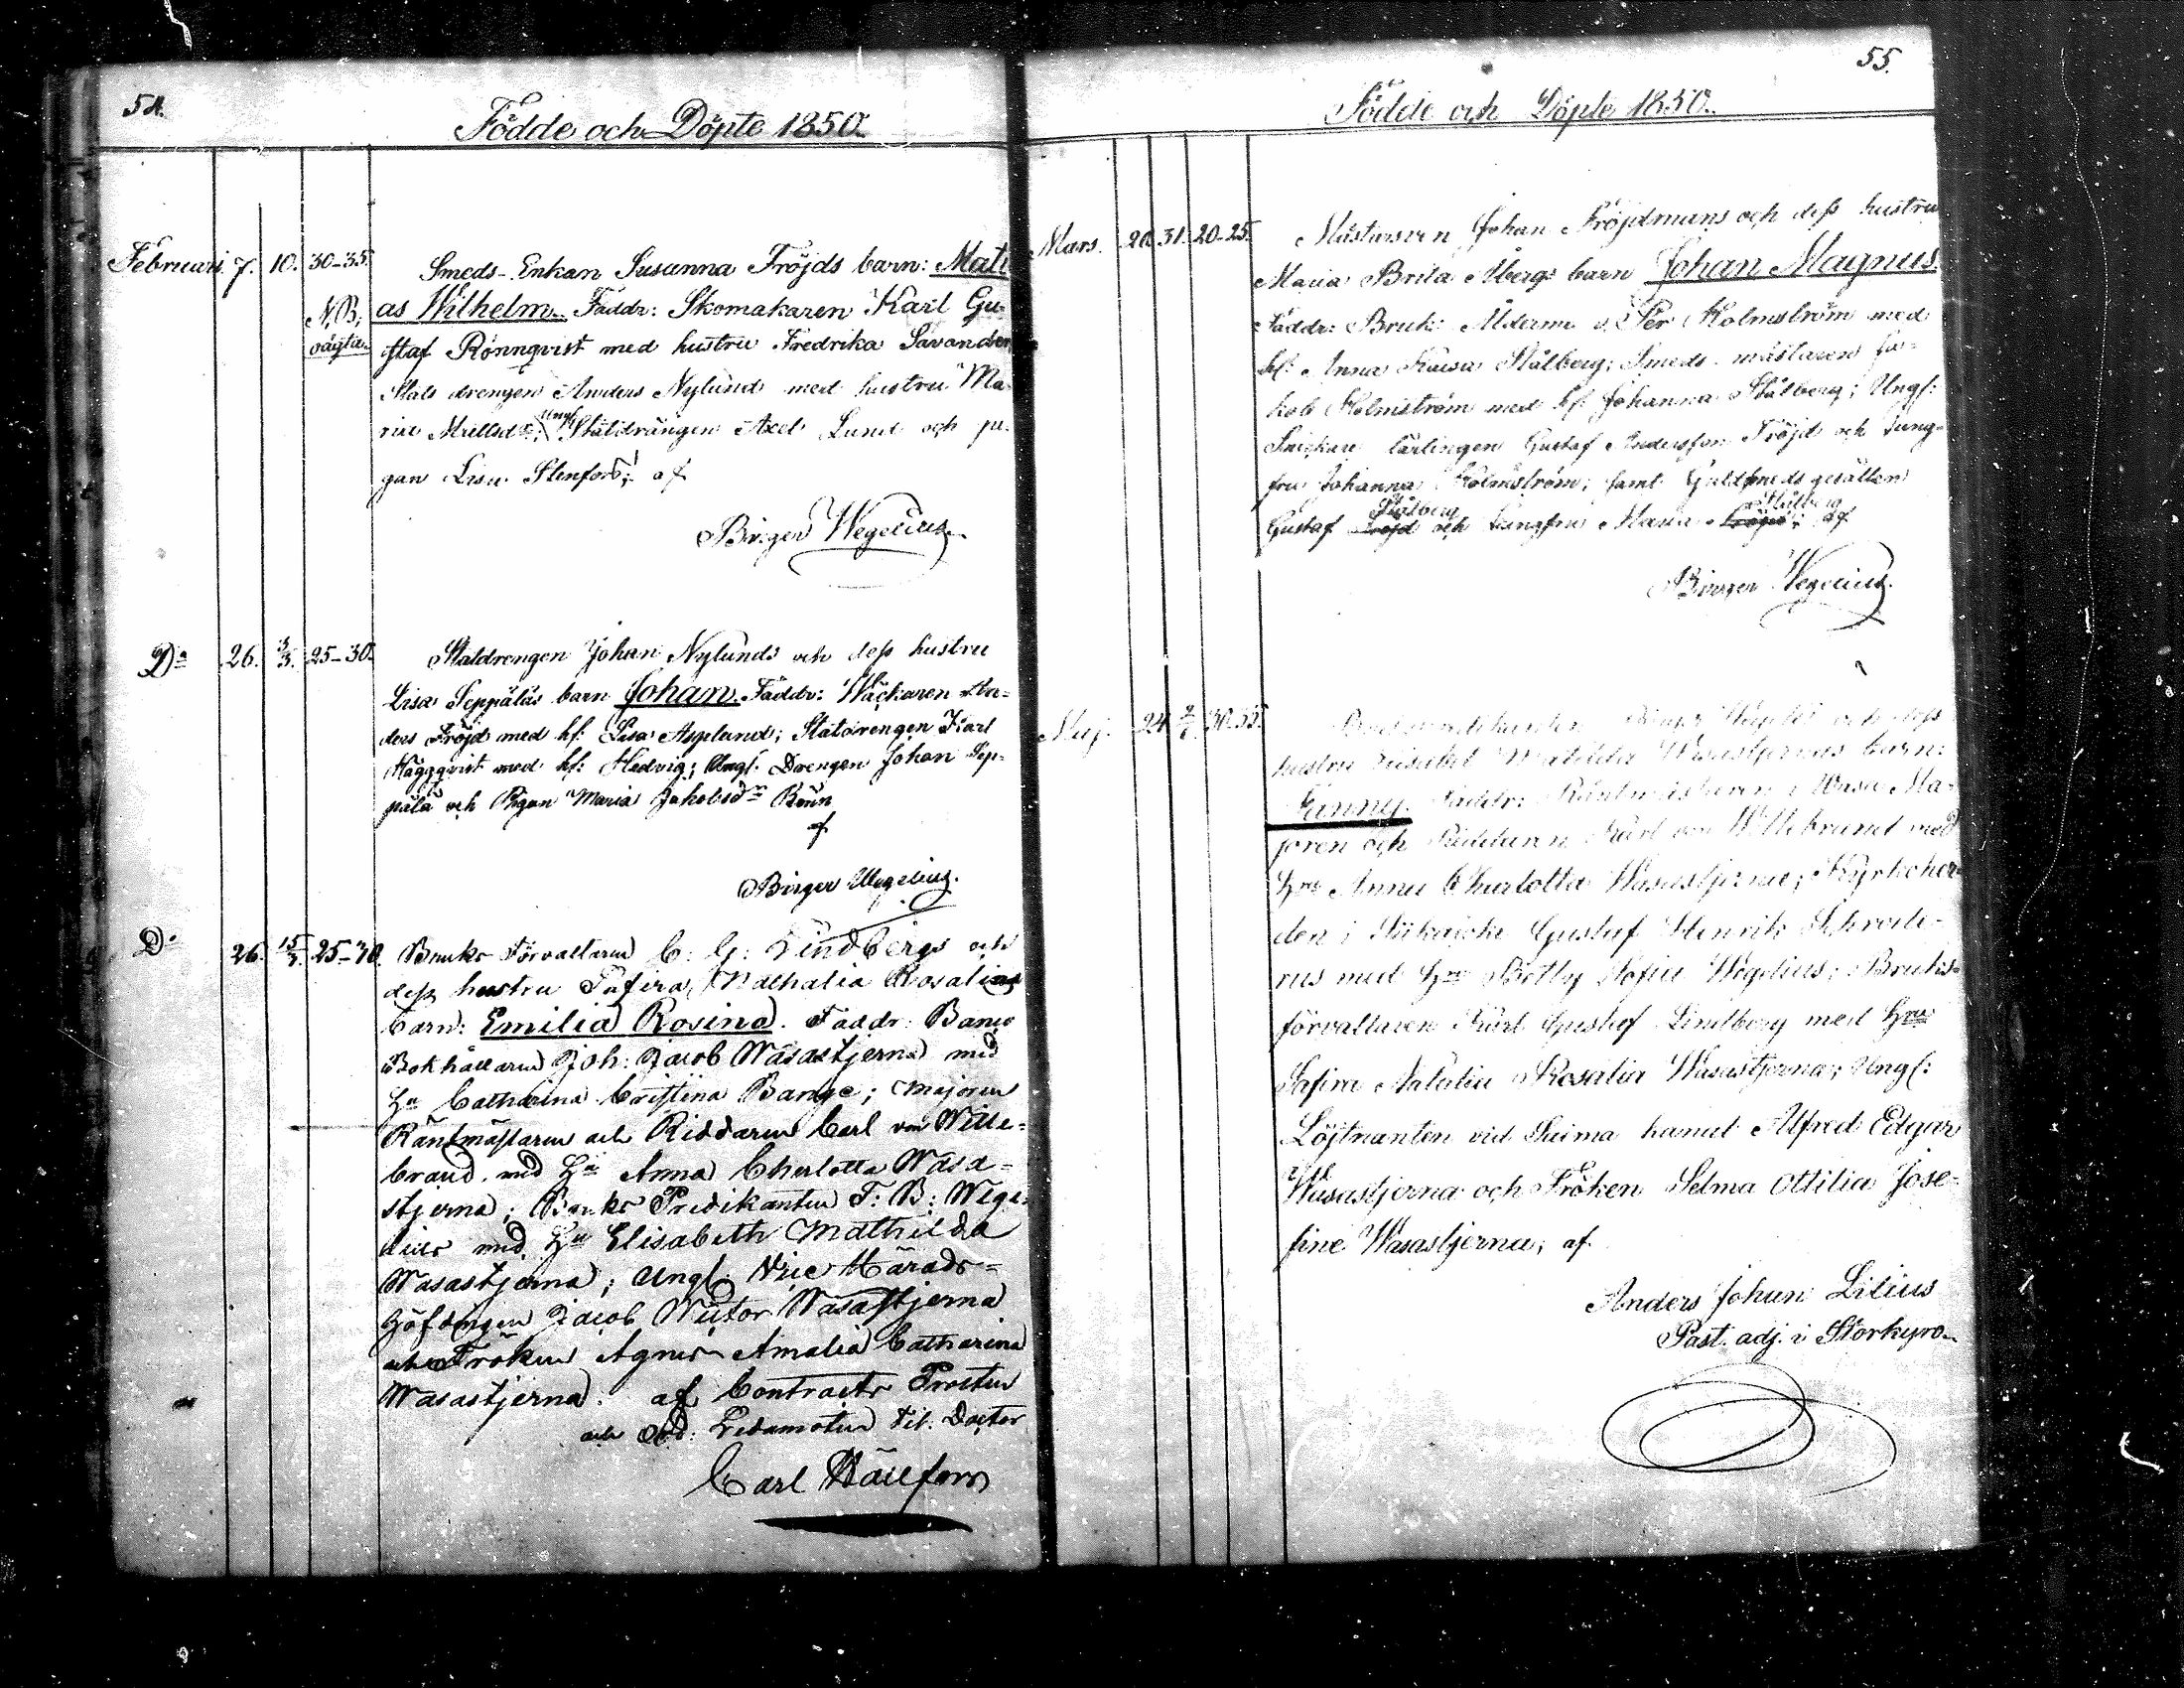 54.
Födde och Döpte 1850.
Februari 7. 10. 30-35. Smeds-Enkan Susanna Fröjds barn: Mati
N.B. as Wilhelm. Faddr: Skomakaren Karl Gu-
oägta. staf Rönnqvist med hustru Fredrika Savander
Stals drengen Anders Nylund med hustru Ma-
ria Ungf. Staldrängen Axel Lund och pi-
gan Lisa Stenfors; af
Birger Wegelius
Do 26. 3/3. 25-30. Staldrengen Johan Nylunds och dess hustru
Lisa Seppäläs barn Johan. Faddr: Wäckaren An-
ders Fröjd med hf: Lisa Asplund; Staldrengen Karl
Häggqvist med hf: Hedvig; Ungf. Drengen Johan Sep-
pälä och Pigan Maria Jakobsdr
af
Birger Wegelius.
Do 26. 15/3. 25-30. Bruks Förvaltaren C: G: Lindbergs och
dess hustru Safira Nathalia Rosalias
barn: Emilia Rosina. Faddr: Banco
Bokhållaren Joh: Jacob Wasastjerna med
Hu Catharina Cristina Bange; Majoren
Räntmästaren och Riddaren Carl von Wille-
brand med Hu Anna Charlotta Wasa-
stjerna; Bruks Predikanten F: B: Wege-
lius med Hu Elisabeth Mathilda
Wasastjerna; Ungf. Vice Härads-
Höfdingen Jacob Wictor Wasastjerna
och Fröken Agnes Amalia Catharina
Wasastjerna. af Contracts Prosten
och Ord: Ledamoten tit. Doctor
Carl Hällfors
55.
Födde och Döpte 1850.
Mars. 20. 31. 20-25. Mästarsven Johan Fröjdmans och dess hustru
Maria Brita Åbergs barn Johan Magnus.
Faddr: Bruks Ålderm: Per Holmström med
hf: Anna Kaisa Stålberg; Smeds-mästaren Ja-
kob Holmström med hf: Johanna Stålberg; Ungf:
Snickare lärlingen Gustaf Andersson Fröjd och Jung-
fru Johanna Holmström; samt Guldsmedsgesällen
Stålberg Stålberg
Gustaf Fröjd och Jungfru Maria Fröjd; af
Birger Wegelius.
Maj. 24. 30-35. Birger Wegelii och dess
hustru Elisabet Matilda Wasastjernas barn:
Fanny. Faddr: Räntmästaren i Wasa Ma-
joren och Riddaren Karl von Willebrand med
Hru Anna Charlotta Wasastjerna; Kyrkoher-
den i Siikajoki Gustaf Henrik Schrode-
rus med Hru Betty Sofia Wegelius; Bruks-
förvaltaren Karl Gustaf Lindberg med Hru
Safira Natalia Rosalia Wasastjerna; Ungf:
Löjtnanten vid Saima kanal Alfred Edgar
Wasastjerna och Fröken Selma Ottilia Jose-
fine Wasastjerna; af
Anders Johan Lilius
Past. adj. i Storkyro